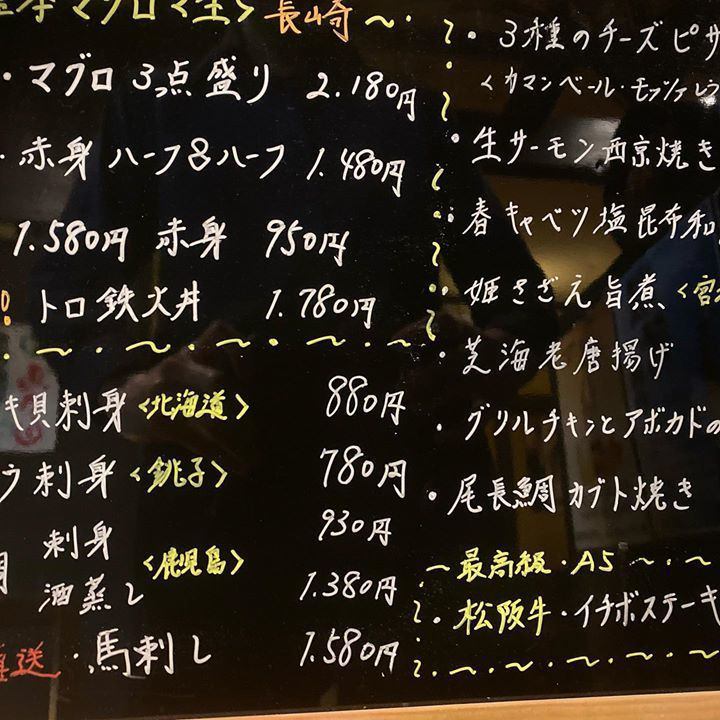 本マグロマ生> 長崎 〜・
・マグロ 3点盛り 2.180円
・赤身 ハーフ&ハーフ 1.480円
1.580円 赤身 950円
! トロ鉄火丼 1.780円
キ貝刺身 <北海道> 880円
ウ刺身 <銚子> 780円
刺身 930円
<鹿児島>
酒蒸し 1.380円
直送 ・馬刺し 1.580円
・3種のチーズピザ
<カマンベール・モッツァレラ
・生サーモン西京焼き
・春キャベツ塩昆布和
・姫さざえ旨煮 <宮
・芝海老唐揚げ
・グリルチキンとアボカドの
・尾長鯛カブト焼き
〜最高級・A5〜・〜
・松阪牛・イチボステーキ